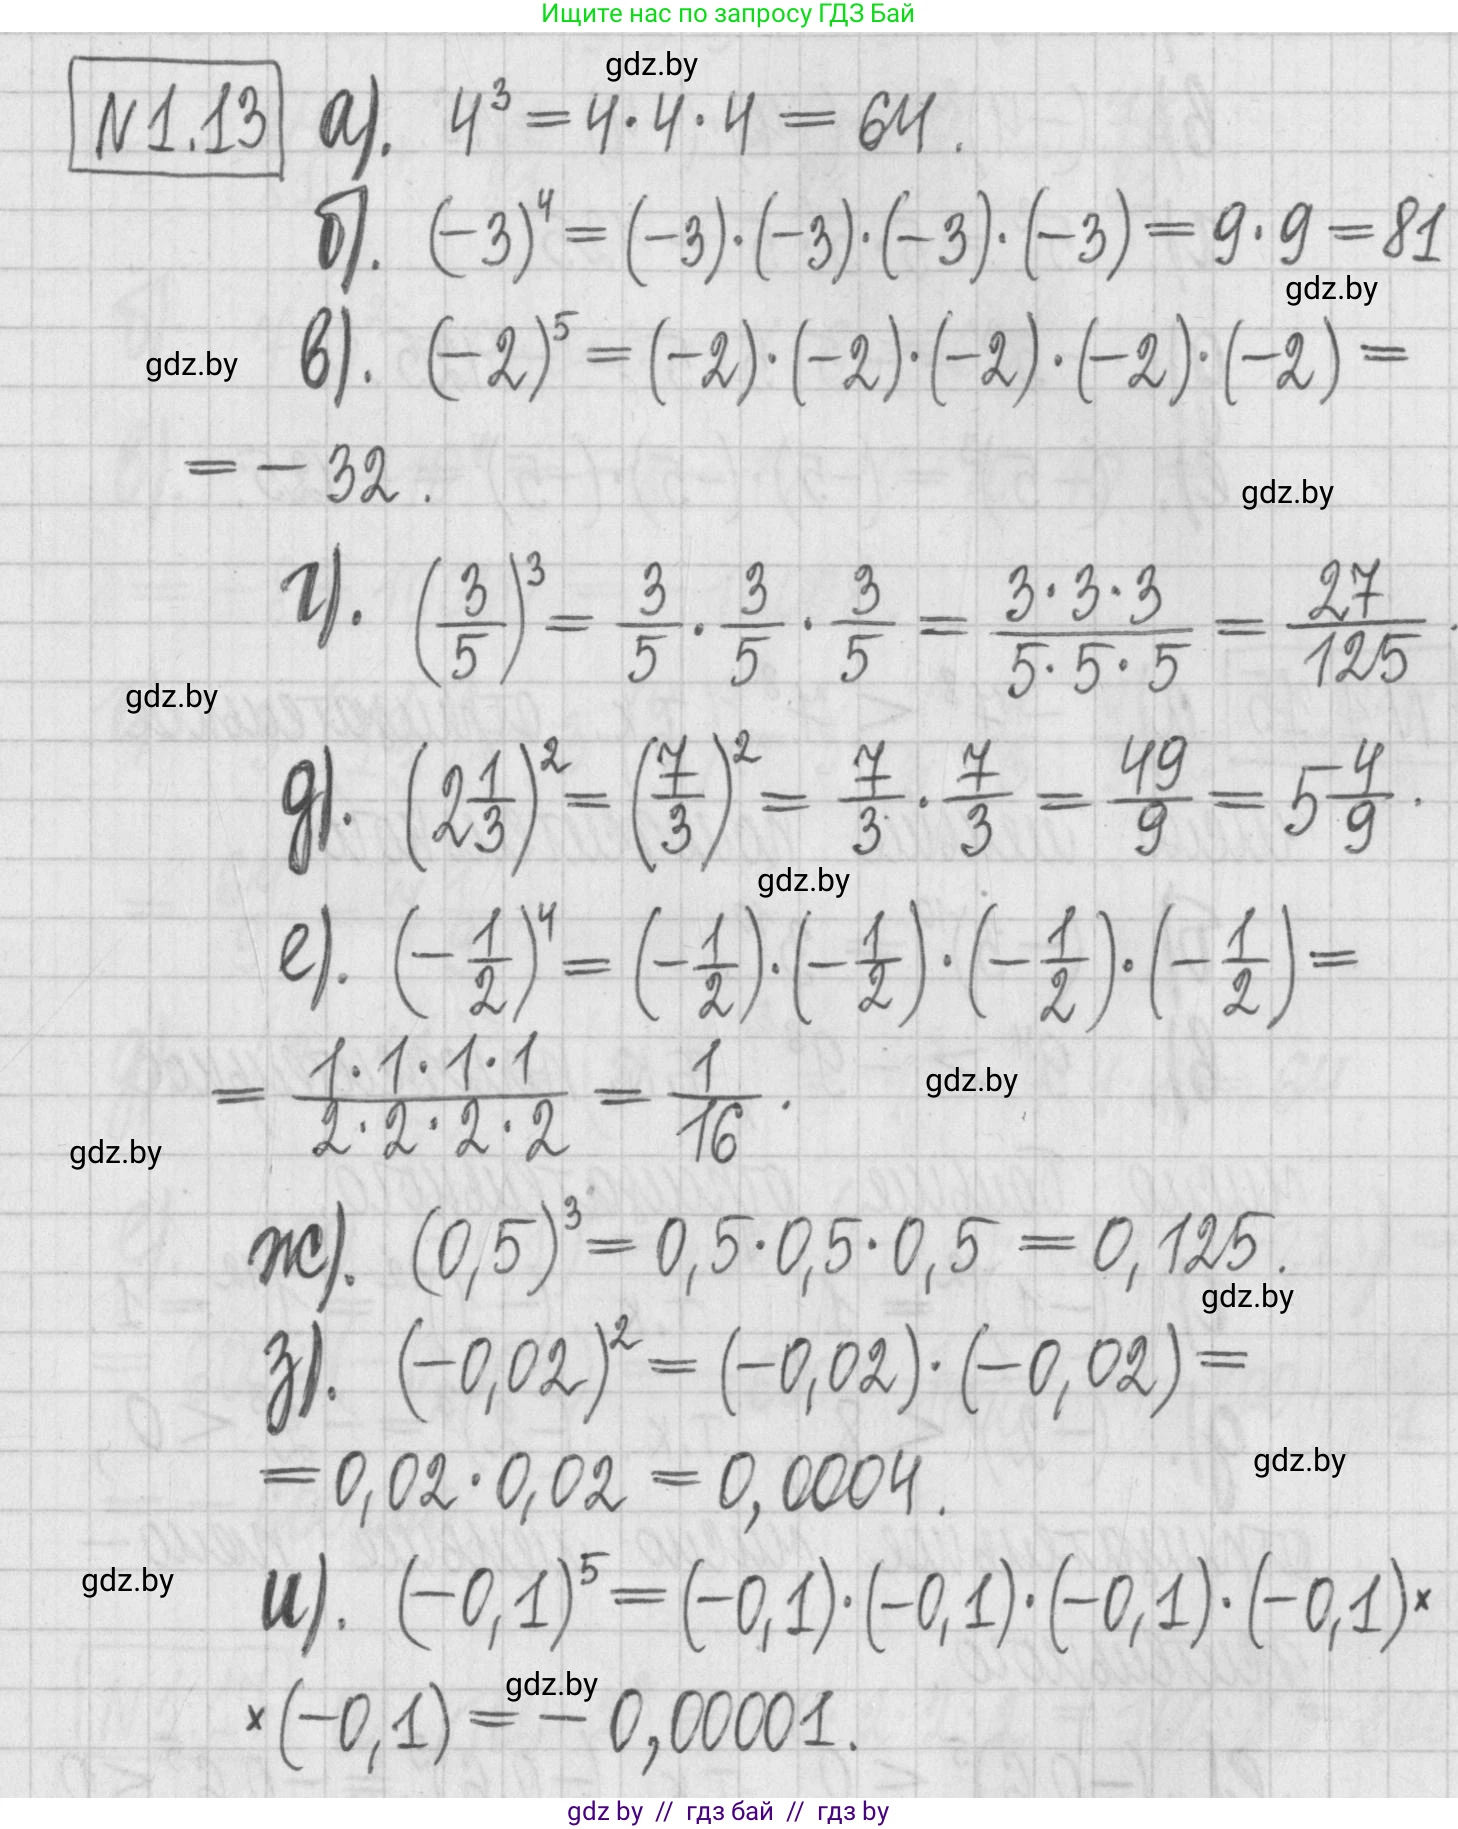 Ищите нас по запросу ГДЗ Бай
gdz.by
N1.13 а). 4³ = 4·4·4 = 64.
б). (-3)⁴ = (-3)·(-3)·(-3)·(-3) = 9·9 = 81
gdz.by
в). (-2)⁵ = (-2)·(-2)·(-2)·(-2)·(-2) =
gdz.by
= -32.
gdz.by
г). (3/5)³ = 3/5 · 3/5 · 3/5 = 3·3·3/5·5·5 = 27/125.
gdz.by
д). (2 1/3)² = (7/3)² = 7/3 · 7/3 = 49/9 = 5 4/9.
gdz.by
е). (-1/2)⁴ = (-1/2)·(-1/2)·(-1/2)·(-1/2) =
= 1·1·1·1/2·2·2·2 = 1/16.
gdz.by
gdz.by
ж). (0,5)³ = 0,5·0,5·0,5 = 0,125.
gdz.by
з). (-0,02)² = (-0,02)·(-0,02) =
= 0,02·0,02 = 0,0004.
gdz.by
gdz.by
и). (-0,1)⁵ = (-0,1)·(-0,1)·(-0,1)·(-0,1)×
gdz.by
×(-0,1) = -0,00001.
gdz by // гдз бай // гдз by